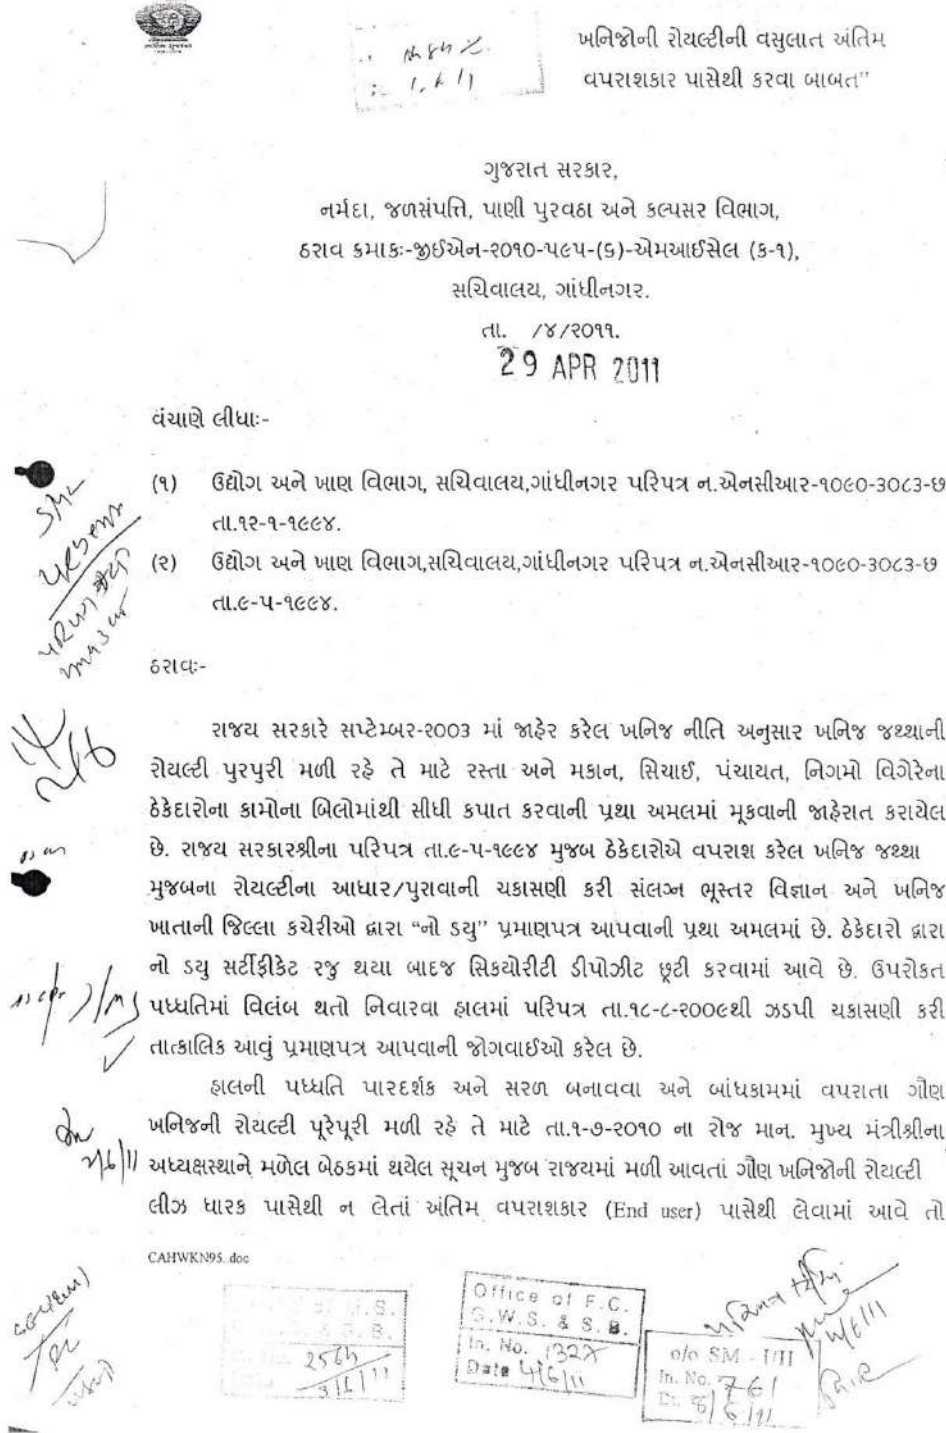 ખનિજોની રોયલ્ટીની વસુલાત અંતિમ
વપરાશકાર પાસેથી કરવા બાબત"
ગુજરાત સરકાર,
નર્મદા, જળસંપત્તિ, પાણી પુરવઠા અને કલ્પસર વિભાગ,
ઠરાવ ક્રમાકઃ-જીઈએન-૨૦૧૦-૫૯૫-(૬)-એમઆઈસેલ (ક-૧),
સચિવાલય, ગાંધીનગર.
તા. /૪/૨૦૧૧.
29 APR 2011
વંચાણે લીધાઃ-
(૧) ઉદ્યોગ અને ખાણ વિભાગ, સચિવાલય,ગાંધીનગર પરિપત્ર ન.એનસીઆર-૧૦૯૦-૩૦૮૩-છ
તા.૧૨-૧-૧૯૯૪.
(૨) ઉદ્યોગ અને ખાણ વિભાગ,સચિવાલય,ગાંધીનગર પરિપત્ર ન.એનસીઆર-૧૦૯૦-૩૦૮૩-છ
તા.૯-૫-૧૯૯૪.
ઠરાવઃ-
રાજય સરકારે સપ્ટેમ્બર-૨૦૦૩ માં જાહેર કરેલ ખનિજ નીતિ અનુસાર ખનિજ જથ્થાની
રોયલ્ટી પુરપુરી મળી રહે તે માટે રસ્તા અને મકાન, સિચાઈ, પંચાયત, નિગમો વિગેરેના
ઠેકેદારોના કામોના બિલોમાંથી સીધી કપાત કરવાની પ્રથા અમલમાં મૂકવાની જાહેરાત કરાયેલ
છે. રાજય સરકારશ્રીના પરિપત્ર તા.૯-૫-૧૯૯૪ મુજબ ઠેકેદારોએ વપરાશ કરેલ ખનિજ જથ્થા
મુજબના રોયલ્ટીના આધાર/પુરાવાની ચકાસણી કરી સંલગ્ન ભૂસ્તર વિજ્ઞાન અને ખનિજ
ખાતાની જિલ્લા કચેરીઓ દ્વારા "નો ડયુ" પ્રમાણપત્ર આપવાની પ્રથા અમલમાં છે. ઠેકેદારો દ્વારા
નો ડયુ સર્ટીફીકેટ રજુ થયા બાદજ સિકયોરીટી ડીપોઝીટ છૂટી કરવામાં આવે છે. ઉપરોકત
પધ્ધતિમાં વિલંબ થતો નિવારવા હાલમાં પરિપત્ર તા.૧૮-૮-૨૦૦૯થી ઝડપી ચકાસણી કરી
તાત્કાલિક આવું પ્રમાણપત્ર આપવાની જોગવાઈઓ કરેલ છે.
હાલની પધ્ધતિ પારદર્શક અને સરળ બનાવવા અને બાંધકામમાં વપરાતા ગૌણ
ખનિજની રોયલ્ટી પૂરેપૂરી મળી રહે તે માટે તા.૧-૭-૨૦૧૦ ના રોજ માન. મુખ્ય મંત્રીશ્રીના
અધ્યક્ષસ્થાને મળેલ બેઠકમાં થયેલ સૂચન મુજબ રાજયમાં મળી આવતાં ગૌણ ખનિજોની રોયલ્ટી
લીઝ ધારક પાસેથી ન લેતાં અંતિમ વપરાશકાર (End user) પાસેથી લેવામાં આવે તો
CAHWKN95..doc
Office of F.C.
G.W.S. & S.B.
In. No. 1327
Date 4/6/11
o/o SM - I/II
In. No. 761
Dt. 8/6/11